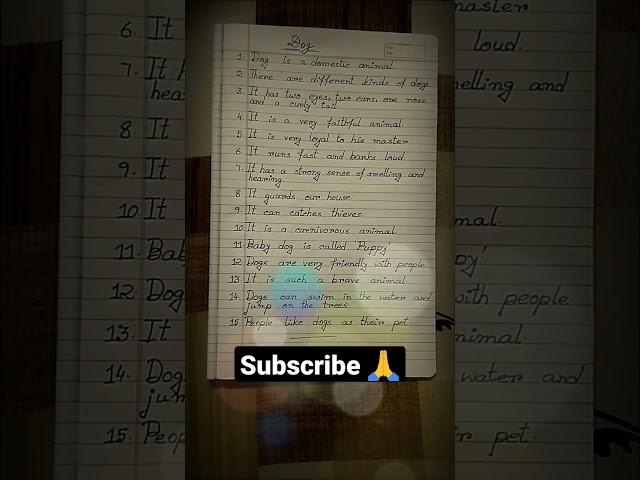 Dog
1. Dog is a domestic animal.
2. There are different kinds of dogs.
3. It has two eyes, two ears, one nose
and a curly tail.
4. It is a very faithful animal.
5. It is very loyal to his master.
6. It runs fast and barks loud.
7. It has a strong sense of smelling and
hearing.
8. It guards our house.
9. It can catches thieves.
10. It is a carnivorous animal.
11. Baby dog is called 'Puppy'.
12. Dogs are very friendly with people.
13. It is such a brave animal.
14. Dogs can swim in the water and
jump on the trees.
15. People like dogs as their pet.
Subscribe 🙏